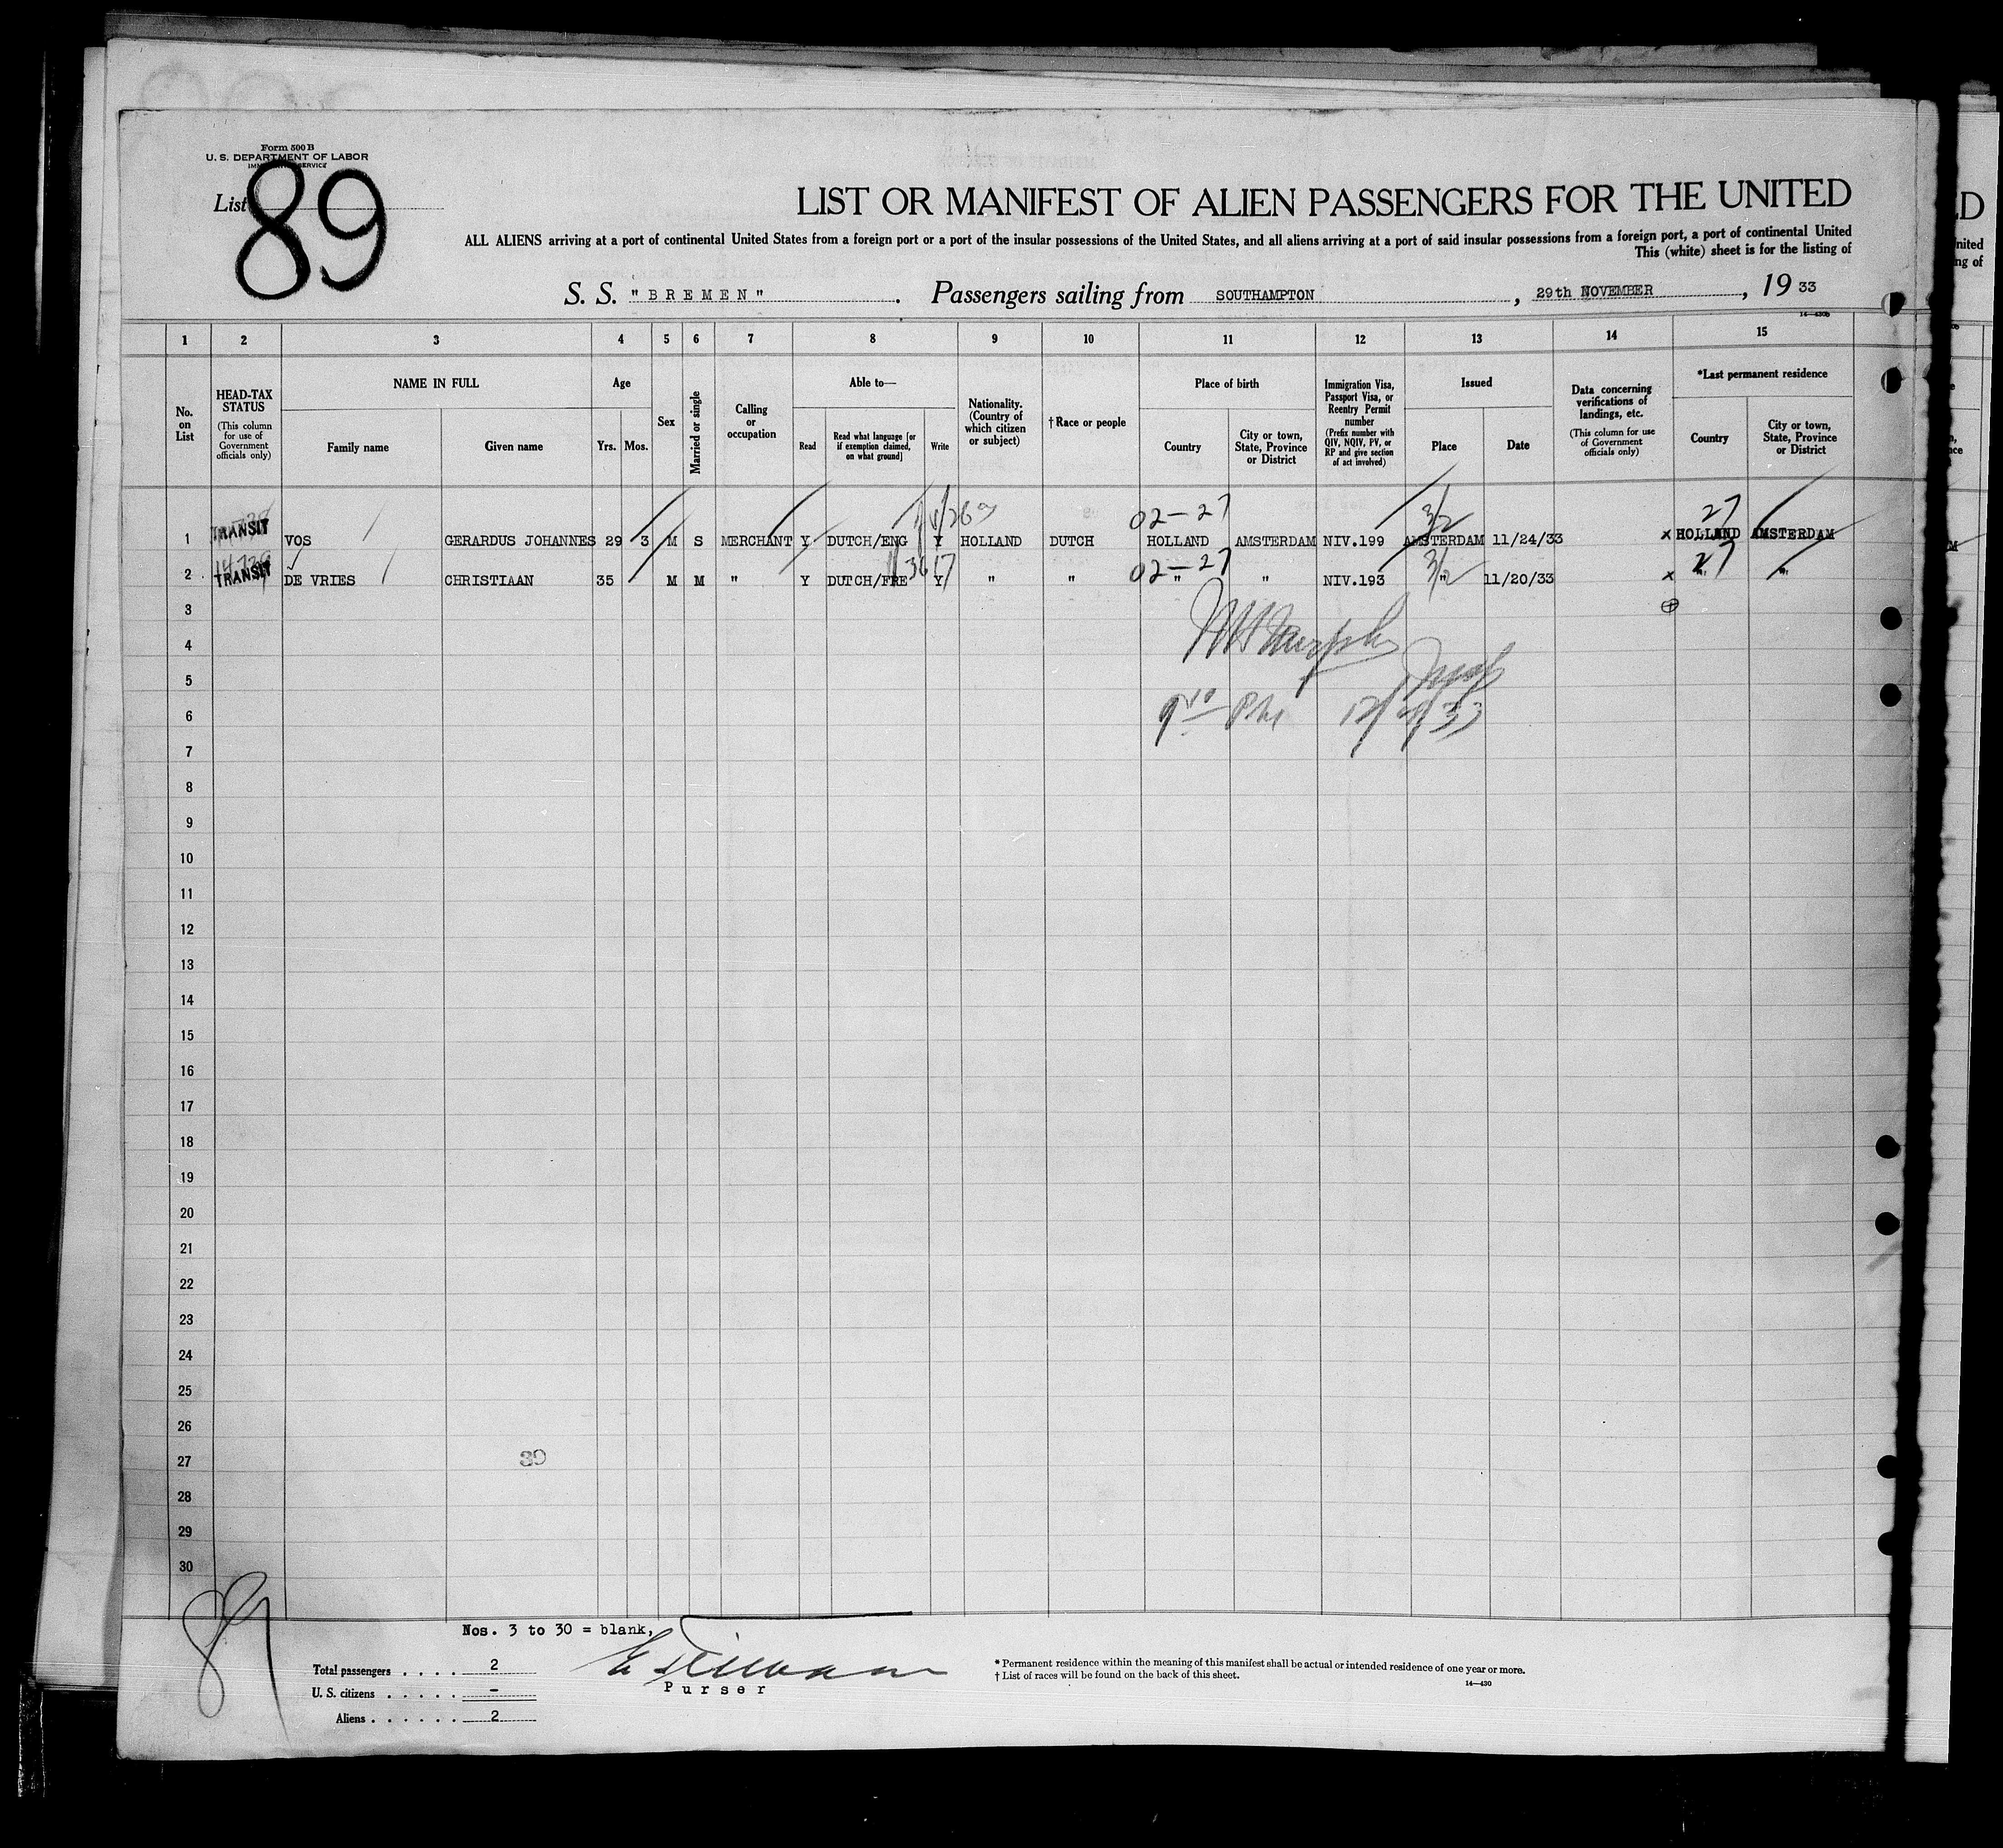 Form 500 B
U. S. DEPARTMENT OF LABOR
IMMIGRATION SERVICE
List 89
LIST OR MANIFEST OF ALIEN PASSENGERS FOR THE UNITED
ALL ALIENS arriving at a port of continental United States from a foreign port or a port of the insular possessions of the United States, and all aliens arriving at a port of said insular possessions from a foreign port, a port of continental United
This (white) sheet is for the listing of
S. S. "BREMEN". Passengers sailing from SOUTHAMPTON, 29th NOVEMBER, 1933
1 2 3 4 5 6 7 8 9 10 11 12 13 14 15
No. on List
HEAD-TAX STATUS (This column for use of Government officials only)
NAME IN FULL
Family name
Given name
Age
Yrs. Mos.
Sex
Married or single
Calling or occupation
Able to—
Read
Read what language [or if exemption claimed, on what ground]
Write
Nationality. (Country of which citizen or subject)
† Race or people
Place of birth
Country
City or town, State, Province or District
Immigration Visa, Passport Visa, or Reentry Permit number (Prefix number with QIV, NQIV, PV, or RP and give section of act involved)
Issued
Place
Date
Data concerning verifications of landings, etc. (This column for use of Government officials only)
*Last permanent residence
Country
City or town, State, Province or District
02-27 3/2 27
1 TRANSIT VOS GERARDUS JOHANNES 29 3 M S MERCHANT Y DUTCH/ENG Y HOLLAND DUTCH HOLLAND AMSTERDAM NIV.199 AMSTERDAM 11/24/33 x HOLLAND AMSTERDAM
02-27 3/2 27
2 TRANSIT DE VRIES CHRISTIAAN 35 M M " Y DUTCH/FRE Y " " " " NIV.193 " 11/20/33 x " "
3
4
5
6
7
8
9
10
11
12
13
14
15
16
17
18
19
20
21
22
23
24
25
26
27 39
28
29
30
89
Nos. 3 to 30 = blank,
Total passengers . . . . 2
U. S. citizens . . . . . –
Aliens . . . . . . 2
Purser
* Permanent residence within the meaning of this manifest shall be actual or intended residence of one year or more.
† List of races will be found on the back of this sheet.
14—430